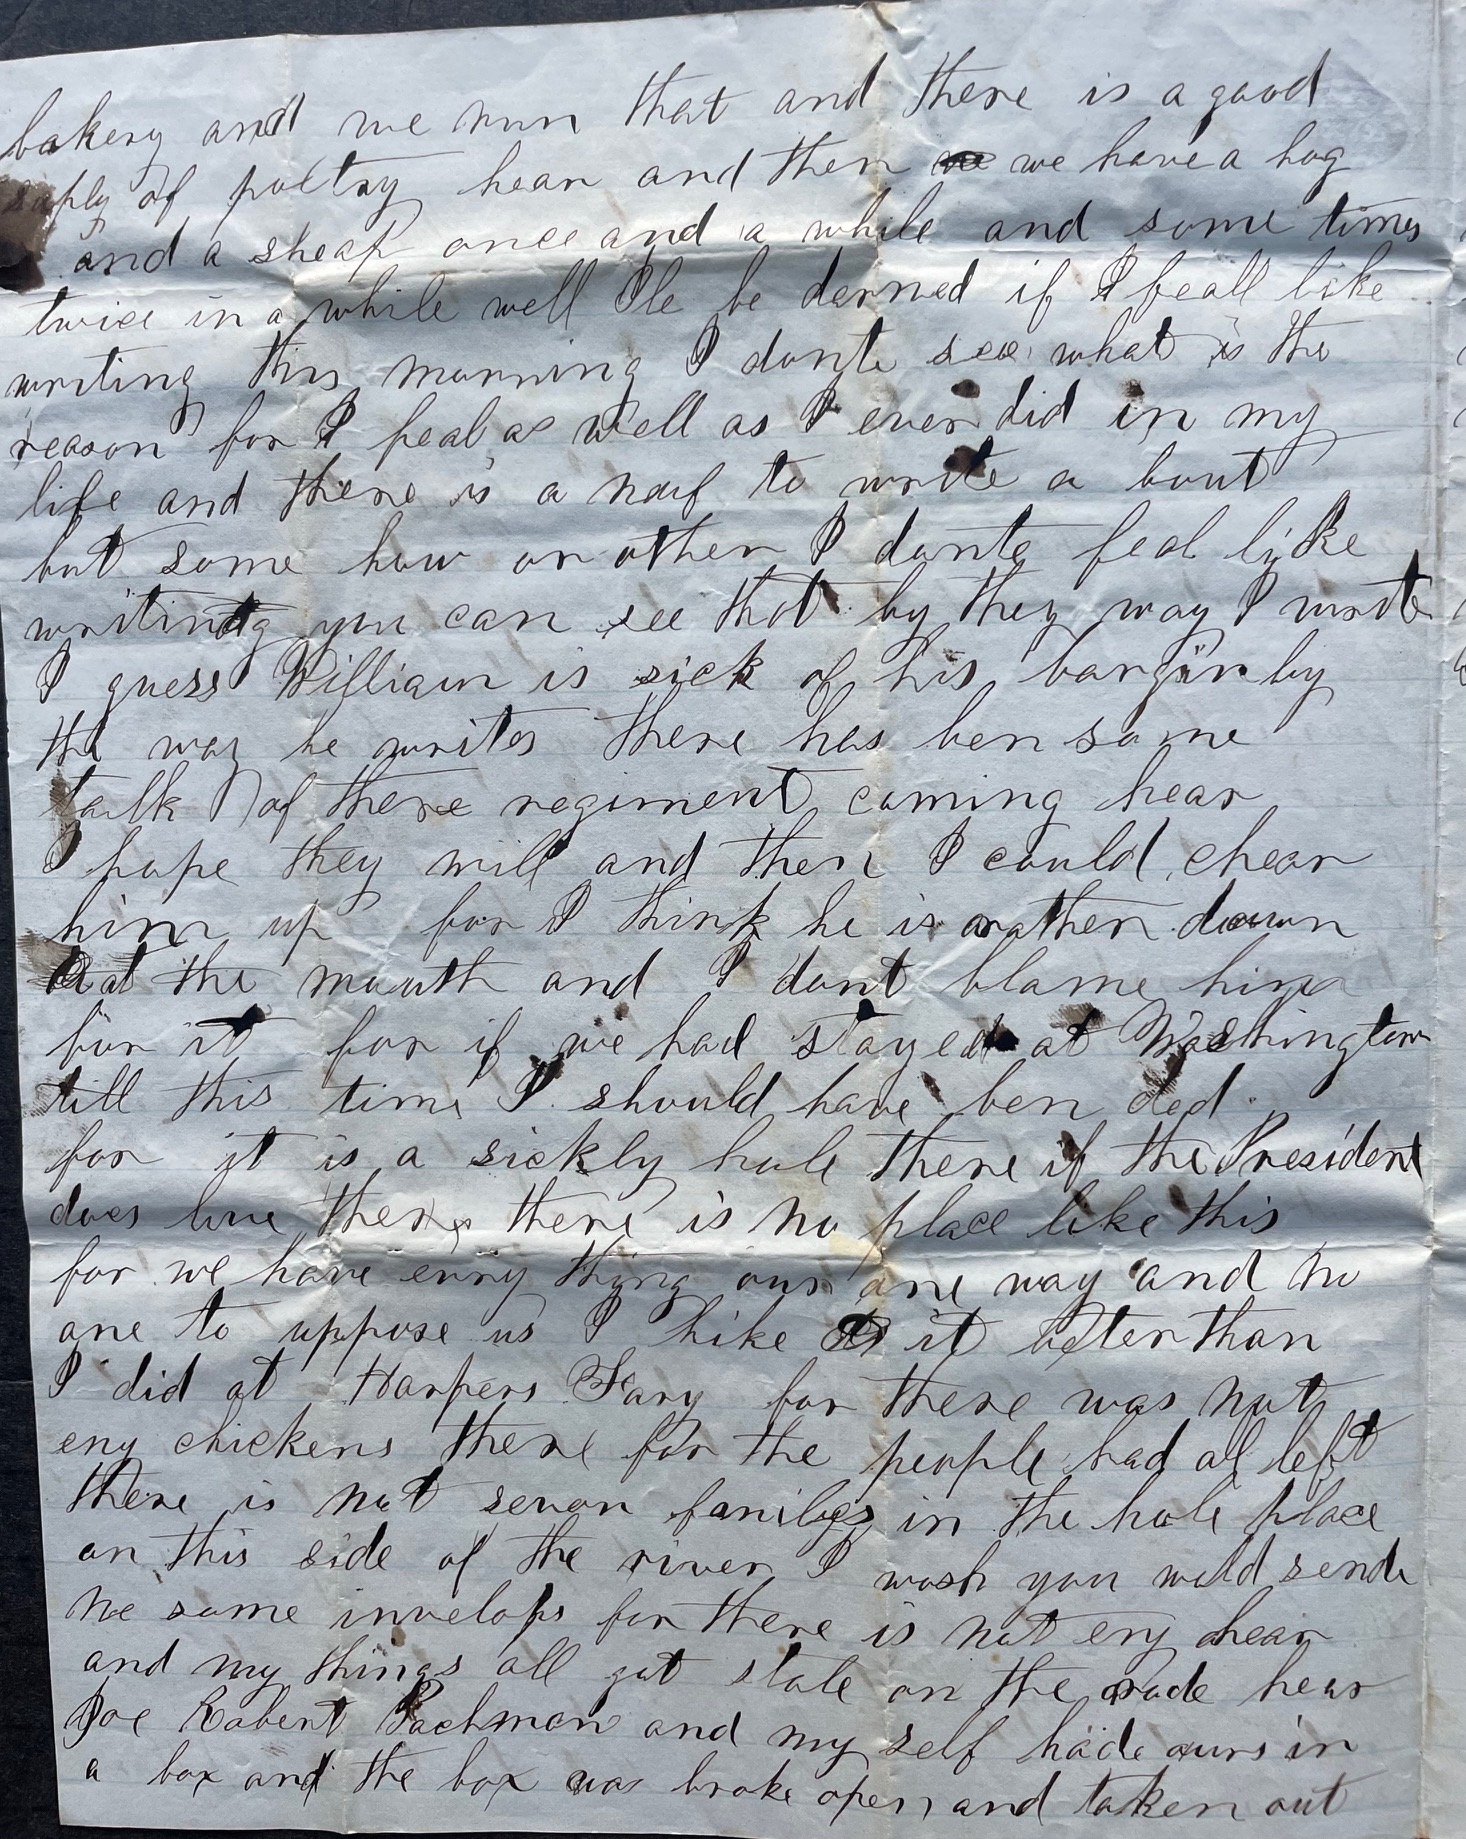 bakery and we run that and there is a good
saply of poltry hear and then we have a hog
and a sheap once and a while and some times
twice in a while well Ile be derned if I feall like
writing this morning I donte see what is the
reason for I feal as well as I ever did in my
life and there is a nuf to write a bout
but some how or other I donte feal like
writing you can see that by they way I write
I guess William is sick of his bargin by
the way he writes there has ben some
talk of there regiment coming hear
I hope they will and then I could chear
him up for I think he is arather down
at the mouth and I dont blame him
for it for if we had stayed at Washington
till this time I should have ben ded
for it is a sickly hole there if the President
does live there there is no place like this
for we have evry thing our one way and no
one to uppose us I like it beter than
I did at Harpers Fary for there was not
eny chickens there for the people had all left
there is not sevon familys in the hole place
on this side of the river I wosh you wold send
me some invelops for there is not eny hear
and my things all got stole on the rode hear
Joe Robert Bachman and my self hade ours in
a box and the box was broke open and taken out